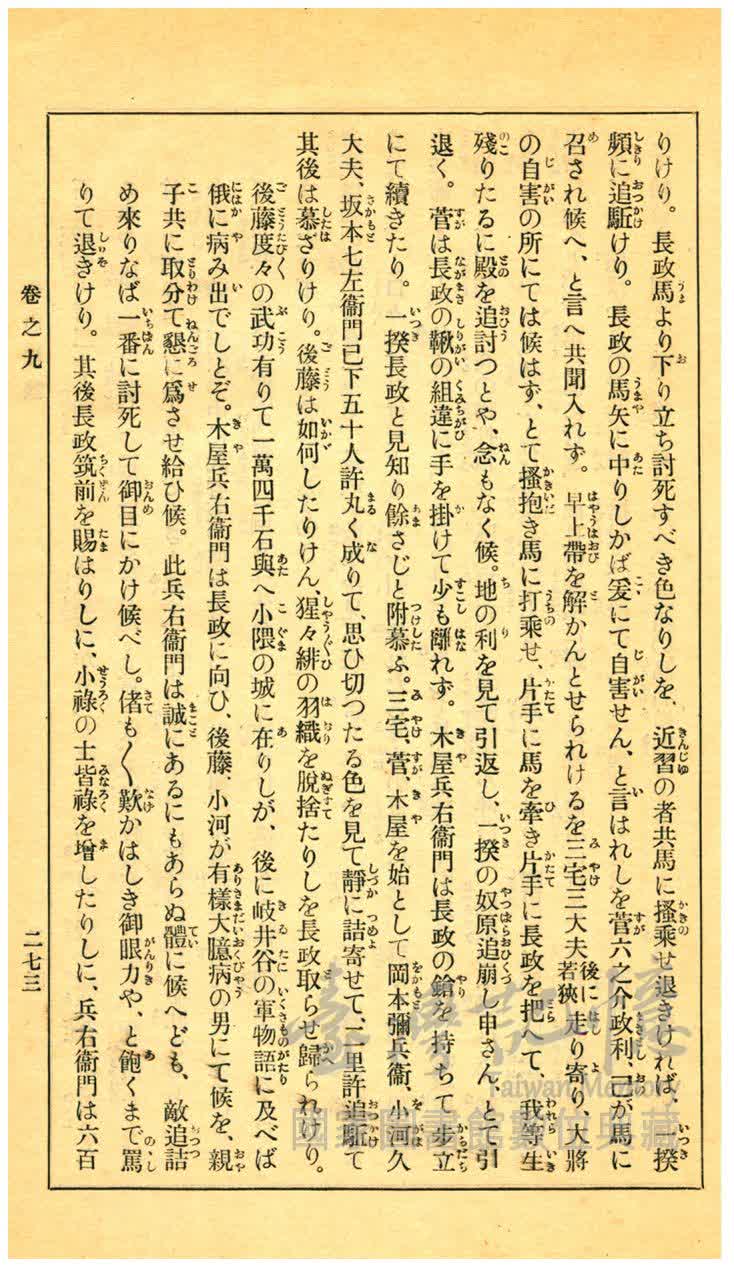 りけり。長政馬より下り立ち討死すべき色なりしを、近習の者共馬に搔乘せ退きければ、一揆
頻に追駈けり。長政の馬矢に中りしかば爰にて自害せん、と言はれしを菅六之介政利、己が馬に
召され候へ、と言へ共聞入れず。早上帶を解かんとせられけるを三宅三大夫後に若狹走り寄り、大將
の自害の所にては候はず、とて搔抱き馬に打乘せ、片手に馬を牽き片手に長政を把へて、我等生
殘りたるに殿を追討つとや、念もなく候。地の利を見て引返し、一揆の奴原追崩し申さん、とて引
退く。菅は長政の鞦の組違に手を掛けて少も離れず。木屋兵右衞門は長政の鎗を持ちて步立
にて續きたり。一揆長政と見知り餘さじと附慕ふ。三宅、菅、木屋を始として岡本彌兵衞、小河久
大夫、坂本七左衞門已下五十人許丸く成りて、思ひ切つたる色を見て靜に詰寄せて、二里許追駈て
其後は慕ざりけり。後藤は如何したりけん、猩々緋の羽織を脫捨たりしを長政取らせ歸られけり。
後藤度々の武功有りて一萬四千石與へ小隈の城に在りしが、後に岐井谷の軍物語に及べば
俄に病み出でしとぞ。木屋兵右衞門は長政に向ひ、後藤、小河が有樣大臆病の男にて候を、親
子共に取分て懇に爲させ給ひ候。此兵右衞門は誠にあるにもあらぬ體に候へども、敵追詰
め來りなば一番に討死して御目にかけ候べし。偖も〱歎かはしき御眼力や、と飽くまで罵
りて退きけり。其後長政筑前を賜はりしに、小祿の士皆祿を增したりしに、兵右衞門は六百
卷之九
二七三
臺灣記憶
Taiwan Memory
國家圖書館數位典藏